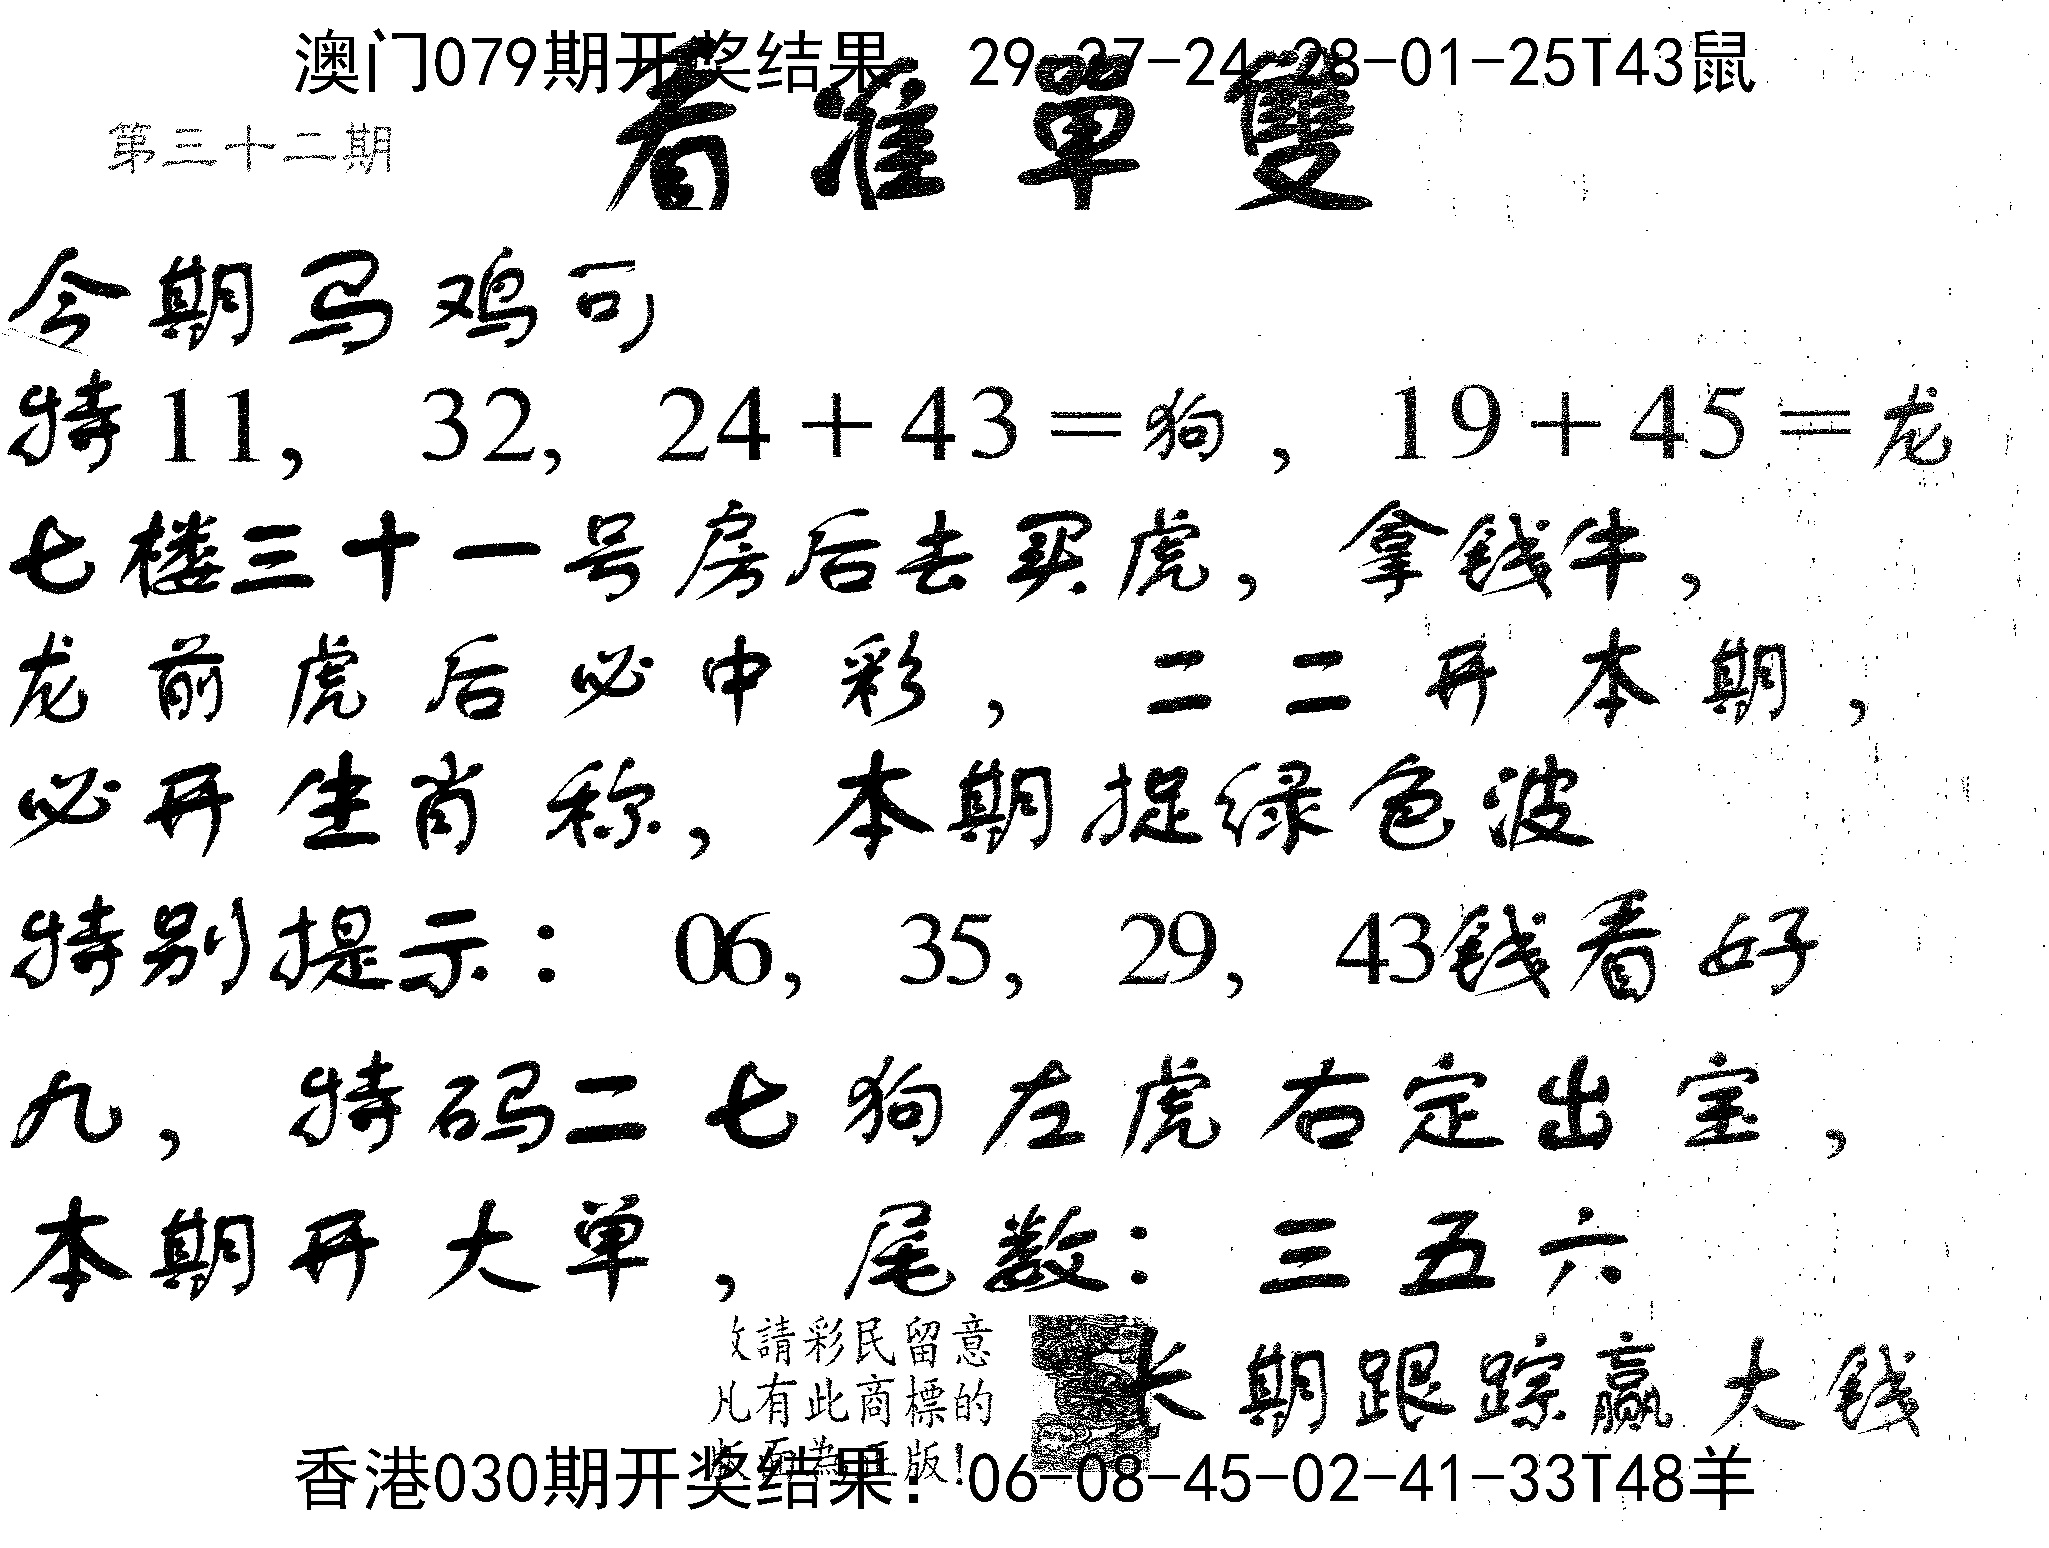 澳门079期开奖结果 29-27-24-28-01-25T43鼠
第三十二期
看准單雙
今期马鸡可
特11, 32, 24+43=狗, 19+45=龙
七楼三十一号房后去买虎,拿钱牛,
龙前虎后必中彩,二二开本期,
必开生肖称,本期捉绿色波
特别提示: 06, 35, 29, 43钱看好
九,特码二七狗左虎右定出宝,
本期开大单,尾数:三五六
請彩民留意
凡有此商標的
版!
长期跟踪赢大钱
香港030期开奖结果: 06-08-45-02-41-33T48羊